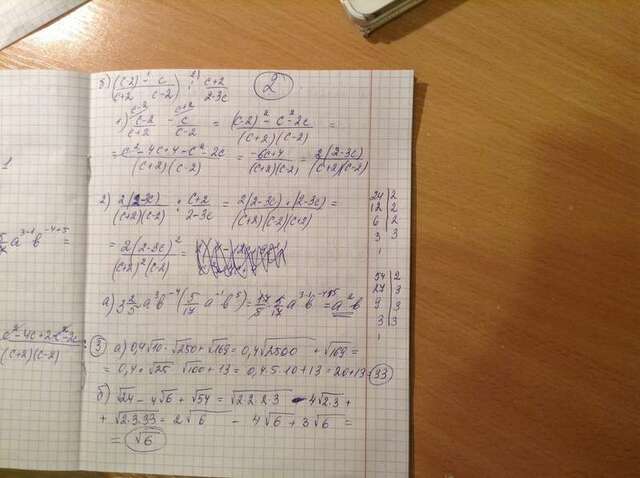 1
б) ((c-2)/(c+2) - c/(c-2)) : (c+2)/(2-3c) 2
1) (c-2)/(c+2) - c/(c-2) = ((c-2)² - c² - 2c)/((c+2)(c-2)) =
= (c² - 4c + 4 - c² - 2c)/((c+2)(c-2)) = (-6c+4)/((c+2)(c-2)) = 2(2-3c)/((c+2)(c-2))
2) 2(2-3c)/((c+2)(c-2)) : (c+2)/(2-3c) = 2(2-3c)·(2-3c)/((c+2)(c-2)(c+2)) =
= 2(2-3c)²/((c+2)²(c-2)) =
a³⁻¹ b⁻⁴⁺⁵ =
а) 3 2/5 a³b⁻⁴ (5/17 a⁻¹b⁵) = 17/5 · 5/17 a³⁻¹b⁻⁴⁺⁵ = a²b
(c+2)(c-2)
3 а) 0,4√10·√250 + √169 = 0,4√2500 + √169 =
= 0,4·√25·√100 + 13 = 0,4·5·10 + 13 = 20 + 13 = 33
б) √24 - 4√6 + √54 = √2·2·2·3 - 4√2·3 +
+ √2·3·3·3 = 2√6 - 4√6 + 3√6 =
= √6
24 | 2
12 | 2
6 | 2
3 | 3
1
54 | 2
27 | 3
9 | 3
3 | 3
1